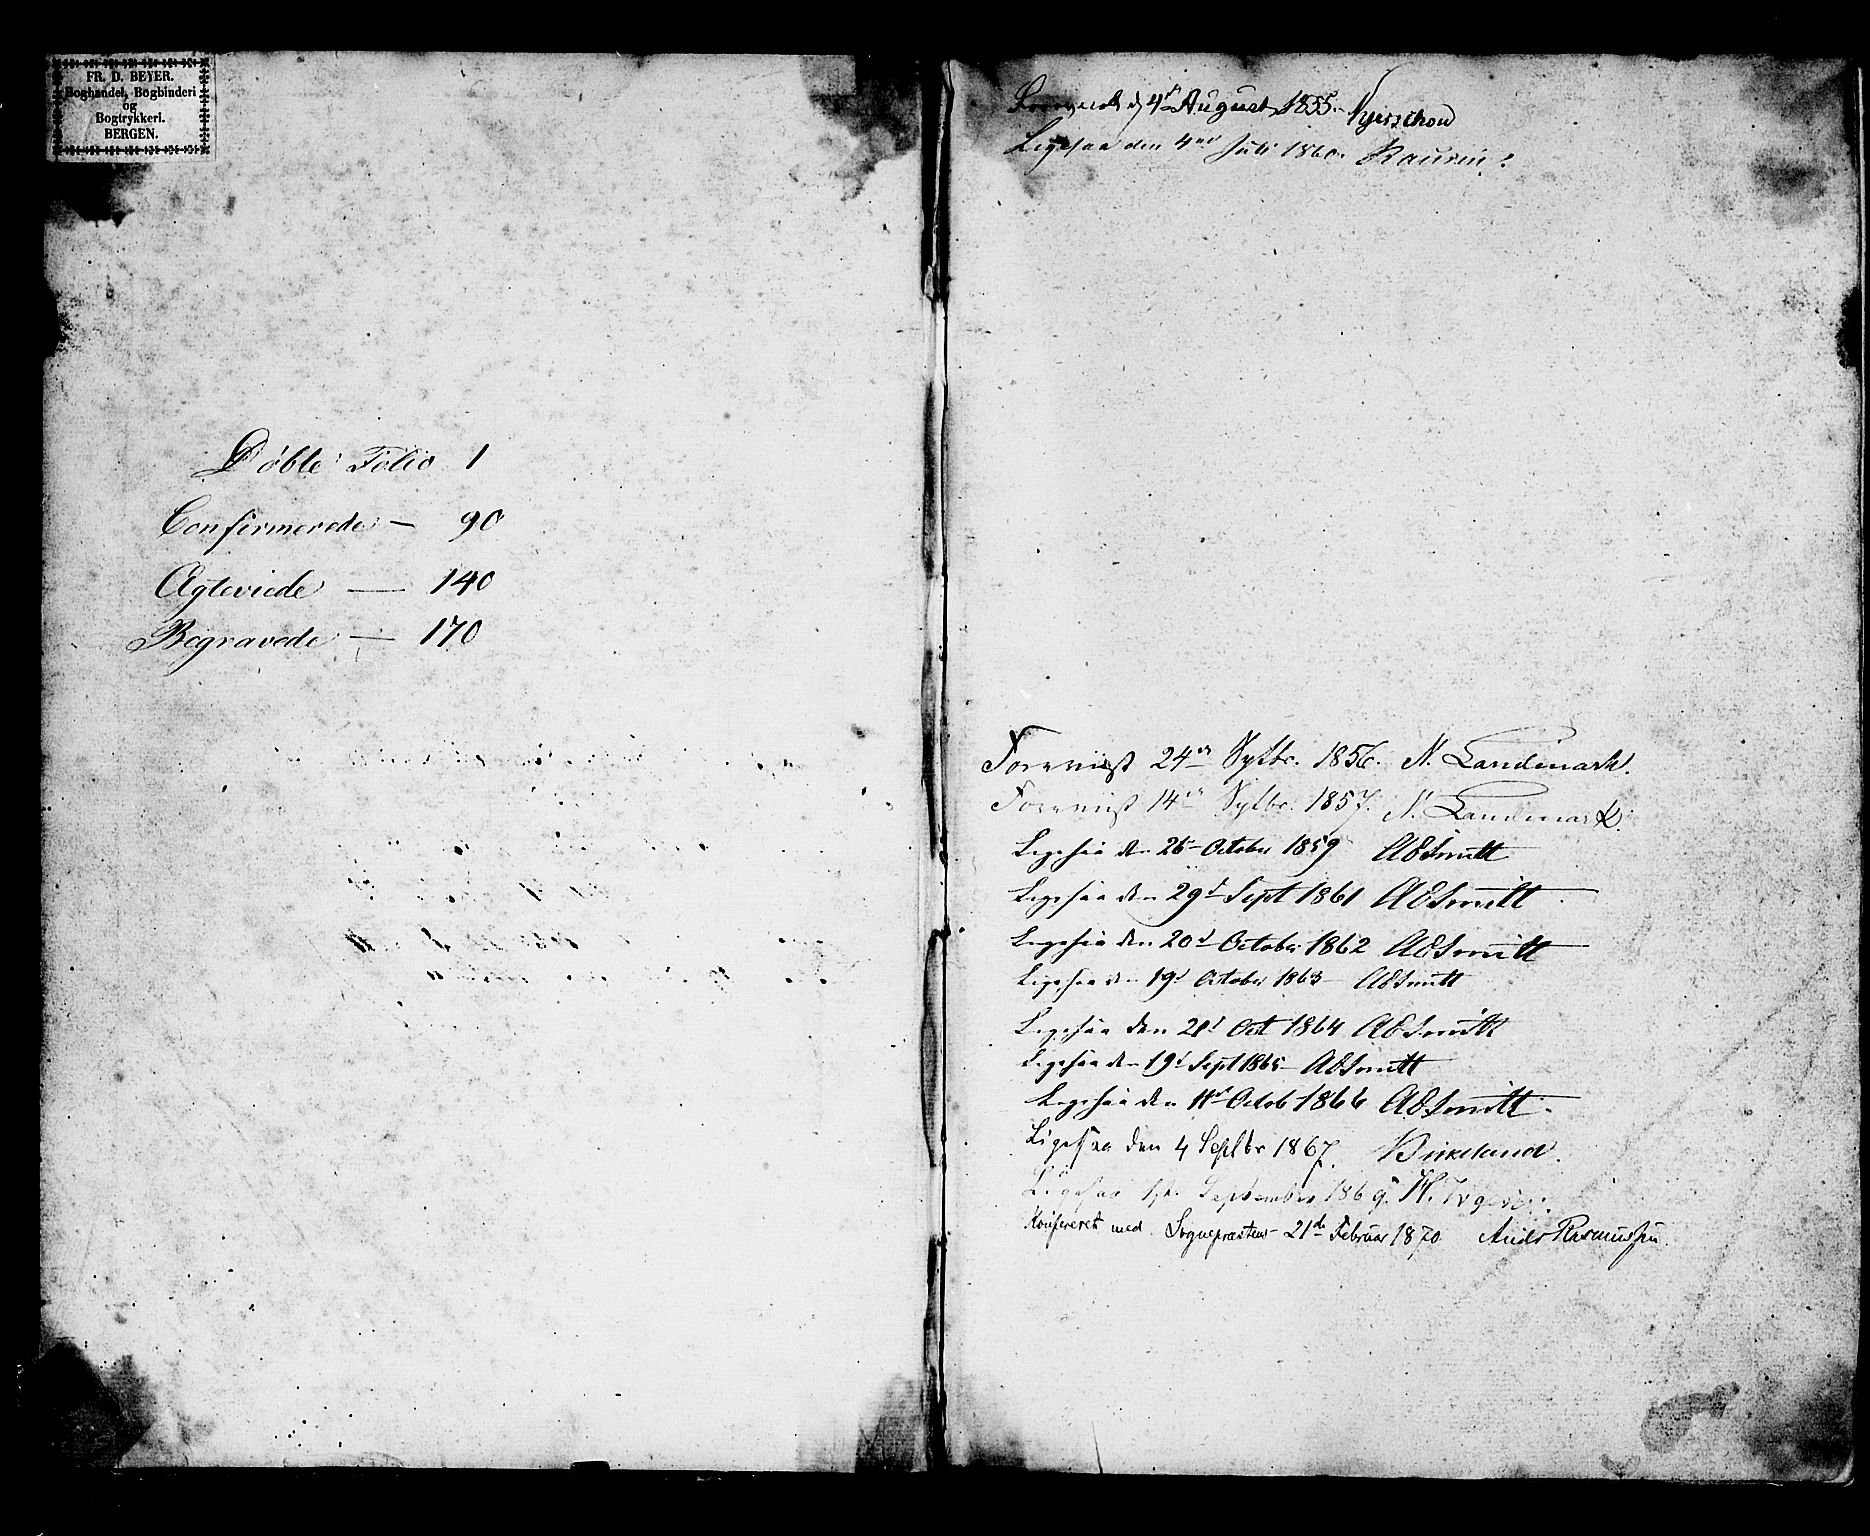 FR. D. BEYER.
Boghandel, Bogbinderi
og
Bogtrykkeri.
BERGEN.
Døbte Folio 1
Confirmerede — 90
Ægteviede — 140
Begravede — 170
4de August 1855. Kjerschow
Ligesaa den 4de Juli 1860.
Foreviist 24de Septbr. 1856. N. Landmark.
Foreviist 14de Septbr. 1857. N. Landmark.
Ligesaa den 26 October 1859 AESmitt
Ligesaa den 29d Sept 1861 AESmitt
Ligesaa den 20d October 1862 AESmitt
Ligesaa den 19d October 1863 AESmitt
Ligesaa den 21d Oct 1864 AESmitt
Ligesaa den 19d Sept 1865 AESmitt
Ligesaa den 11d Octob 1866 AESmitt.
Ligesaa den 4 Septbr 1867. Birkeland.
Ligesaa September 1869.
Konfereret med Sognepræstens 21de Februar 1870 Ands Rasmussen.